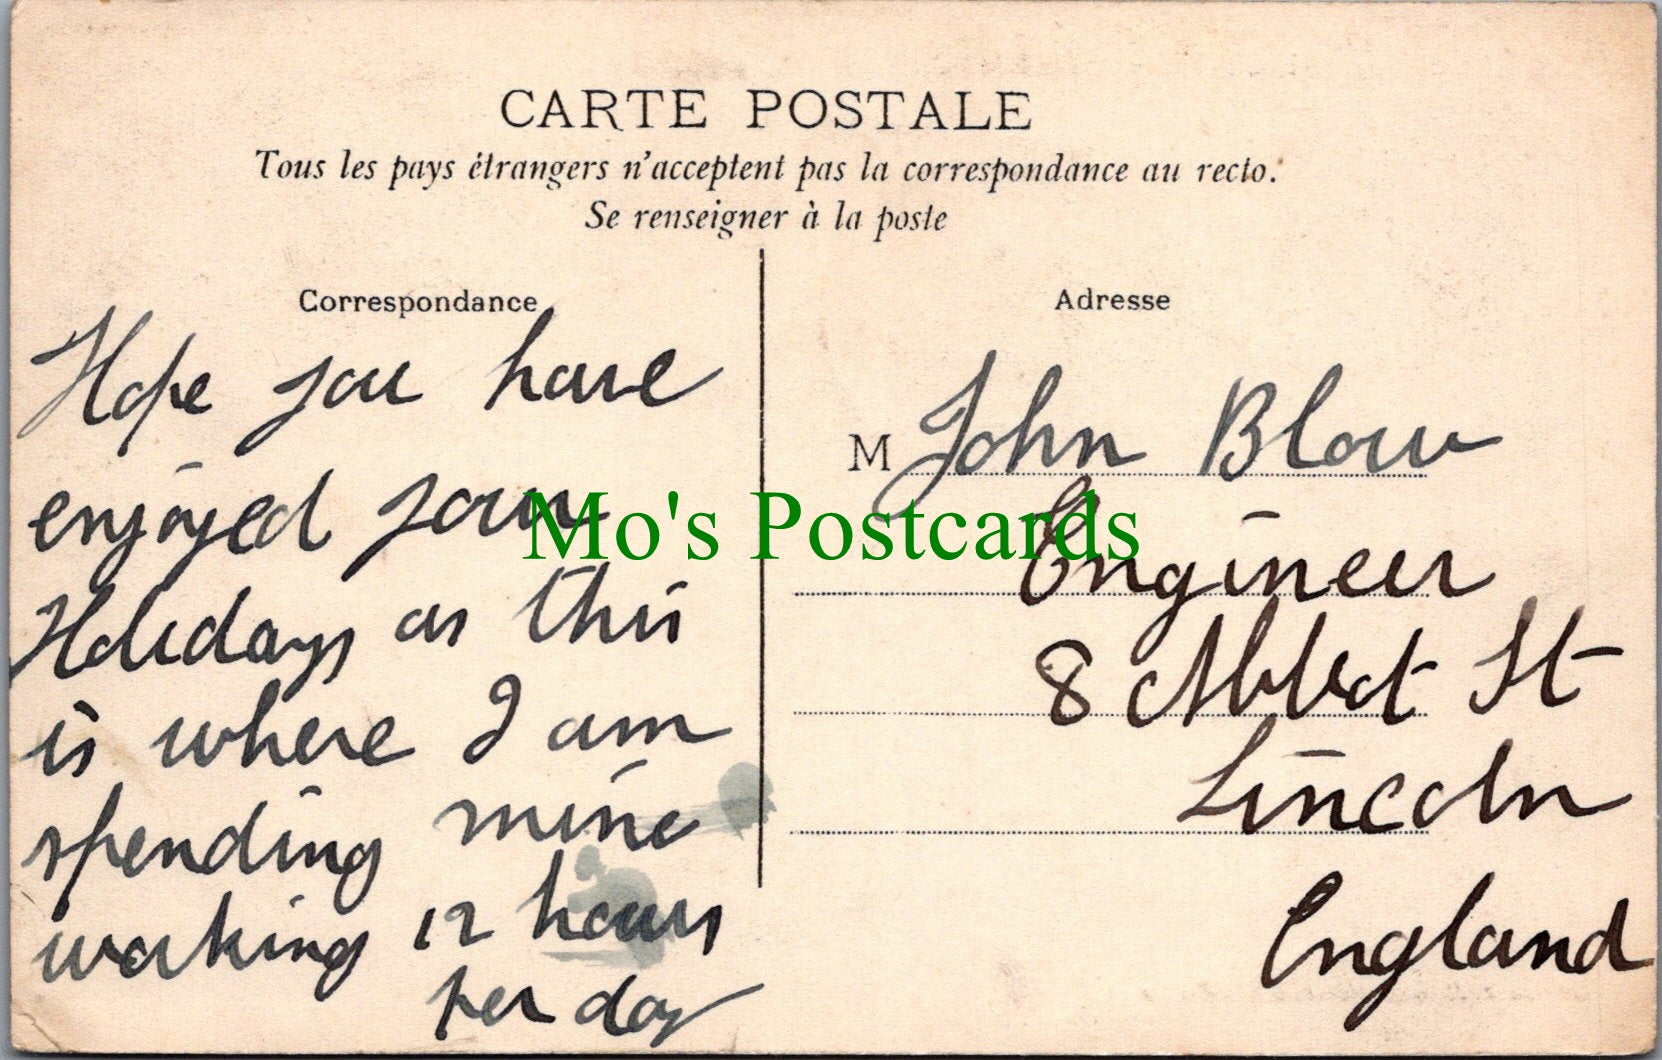 CARTE POSTALE
Tous les pays étrangers n'acceptent pas la correspondance au recto.
Se renseigner à la poste
Correspondance
Hope you have
enjoyed your
Holidays as this
is where I am
spending mine
working 12 hours
per day
Adresse
M John Blow
Engineer
8 Abbot St
Lincoln
England
Mo's Postcards